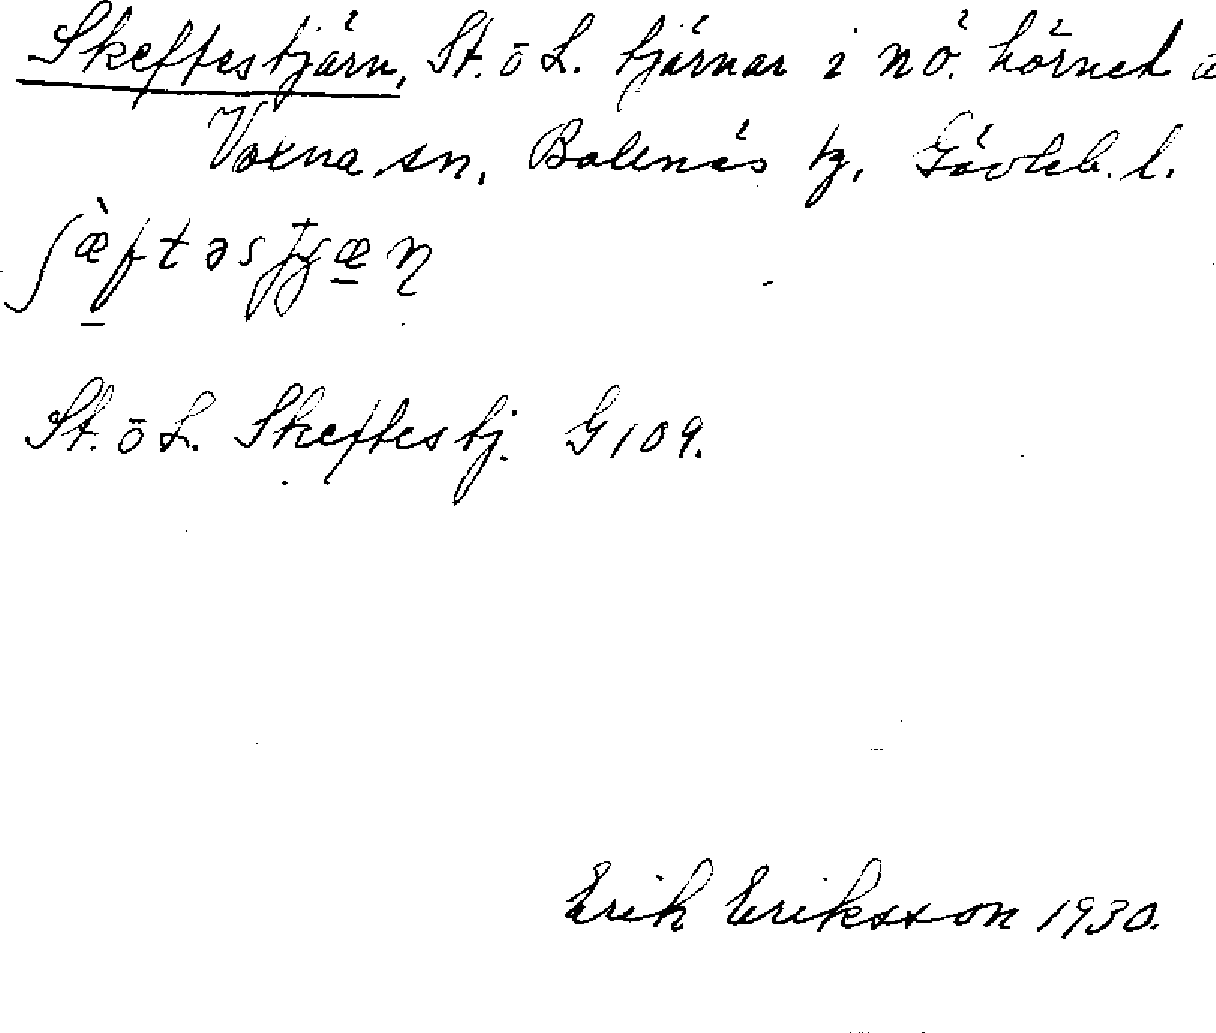 Skeftestjärn, St. o L. tjärnar i nö. hörnet a
Voxna sn, Bollnäs tg, Gävleb. l.
St. o L. Skeftestj. G 109.
Erik Eriksson 1930.